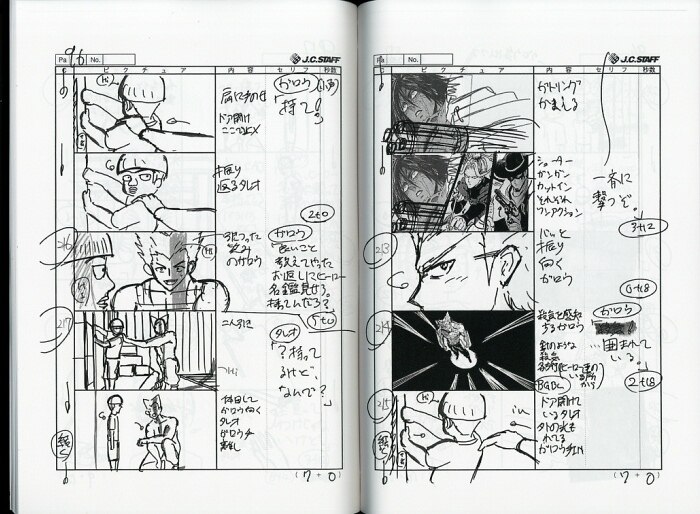 J.C.STAFF
Pa
No.
C
ピクチュア
内容
セリフ
秒数
ガロウ
「待て!」
肩に手のせ
ドア開け
振り
返るタレオ
2+0
216
ガロウ
引きつった
笑み
のガロウ
「良いこと
教えてやった
お返しにヒーロー
名鑑見せろ。
持ってんだろ?」
5+0
217
こんなに
タレオ
「?持って
るけど、
なんで?」
ガロウ向く
タレオ
(7+0)
J.C.STAFF
Pa
No.
C
ピクチュア
内容
セリフ
秒数
ガトリング
かまえる
シューター
ガンガン
カットイン
それぞれ
一斉に
撃つぞ。
3+12
213
バッと
振り
向く
ガロウ
0+18
214
殺気を感知
するガロウ
針のような
殺気
ガロウ
…囲まれて
いる。
2+18
BGDL
215
ドア開けて
いるタレオ
外の光も
れてる
ガロウチIN
(7+0)